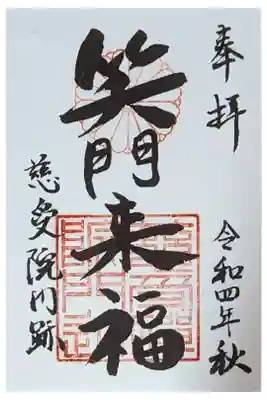 奉拝
令和四年秋
笑門来福
慈受院門跡